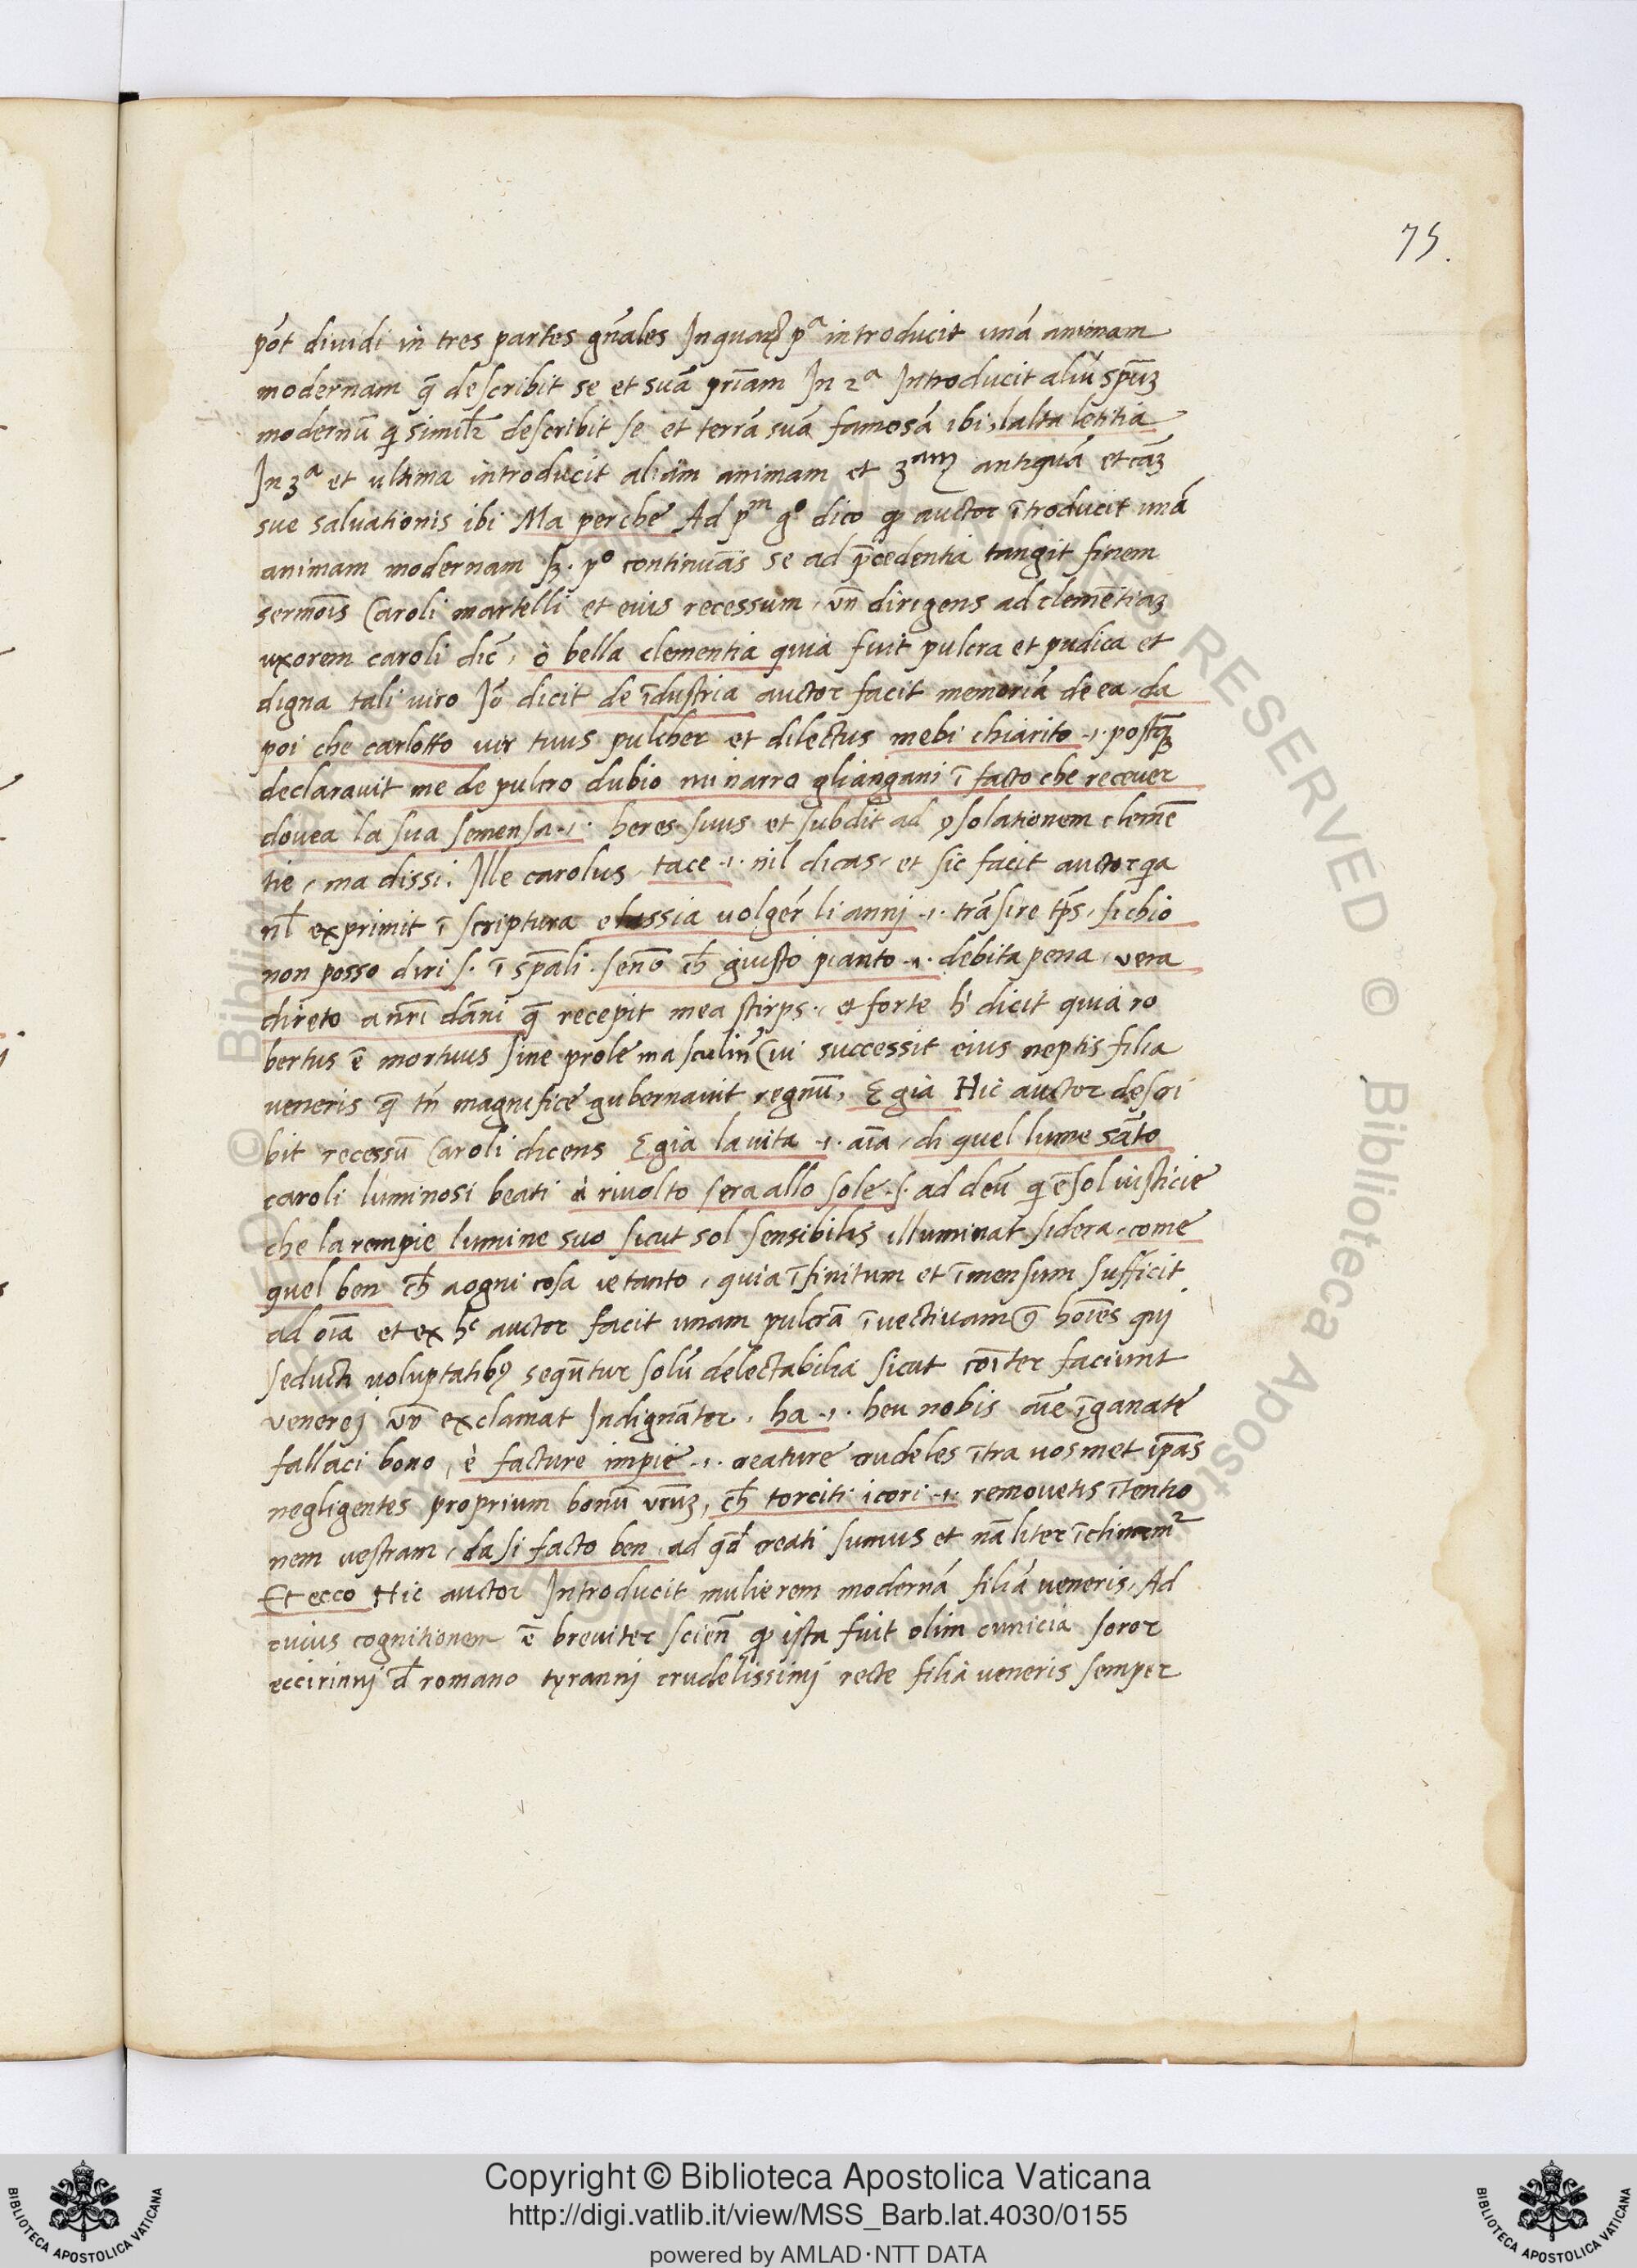 75.
põt diuidi in tres partes gñales Inquaꝝ pᵃ introducit unā animam
modernam q̄ describit se et suā pr̄iam In 2ᵃ Introducit aliū sp̄uꝫ
modernū qͥ similꝶ describit se et terrā suā famosā ibi, laltra letitia
In 3ᵃ et ultima introducit aliam animam et 3ᵃᵐ antiquā et cāꝫ
sue saluationis ibi Ma perche Ad pᵐ gᵒ dico ꝙ auctor ītroducit unā
animam modernam sꝫ. pᵒ continuās se ad p̄cedentia tangit finem
sermōis Caroli martelli et eius recessum, vn̄ dirigens ad clemētiaꝫ
uxorem caroli dic̄, ò bella clementia quia fuit pulcra et pudica et
digna tali uiro Iō dicit de īdustria auctor facit memoriā de ea, da
poi che carlotto uir tuus pulcher et dilectus mebi chiarito .ı. postq̄ꝫ
declarauit me de pulcro dubio mi narro gliangani ī facto che receuer
douea la sua semensa .ı. heres suus et subdit ad ꝯsolationem clemē
tie, ma dissi. Ille carolus, tace .ı. nil dicas, et sic facit auctor qͥa
nl̄ exprimit ī scriptura elassia uolgér li annj .ı. trāsire tp̄s, sichio
non posso diri s. ī sp̄ali. senō ch̄ giusto pianto .ı. debita pena, vera
direto a nr̄i dāni q̄ recepit mea stirps, et forte h̄ dicit quia ro
bertus ē mortuus sine prole masculin̄ Cui successit eius neptis filia
ueneris q̄ tn̄ magnifice gubernauit regnū, E gia Hic auctor descri
bit recessū Caroli dicens E gia lauita .ı. aīa, di quel lume sāto
caroli luminosi beati è riuolto sera allo sole .s. ad deū qͥ ē sol iusticie
che la rempie lumine suo sicut sol sensibilis illuminat sidera, come
quel ben ch̄ aogni cosa ve tanto, quia īfinitum et īmensum sufficit
ad oīa et ex hͨ auctor facit unam pulcrā īuectiuam ꝯ̄ hoīes qui
seducti uoluptatibꝰ sequntur solū delectabilia sicut cōiter faciunt
venerej vn̄ exclamat Indignāter, ha .ı. heu nobis aīe īganate
fallaci bono, è facture impie .ı. creature crudeles ītra uosmet ip̄as
negligentes proprium bonū vr̄uꝫ, ch̄ torciti icori .ı. remouetis ītentio
nem uestram, da si facto ben, ad qd̄ creati sumus et nāliter īclinamꝛ
Et ecco Hic auctor Introducit mulierem modernā filiā ueneris, Ad
cuius cognitionem ē breuiter scien̄ ꝙ ista fuit olim cunicia soror
eccirinij d̄ romano tyrannj crudelissimj recte filia ueneris semper
© Biblioteca Apostolica Vaticana
ALL RIGHTS RESERVED
Copyright © Biblioteca Apostolica Vaticana
http://digi.vatlib.it/view/MSS_Barb.lat.4030/0155
powered by AMLAD·NTT DATA
BIBLIOTECA APOSTOLICA VATICANA
BIBLIOTECA APOSTOLICA VATICANA